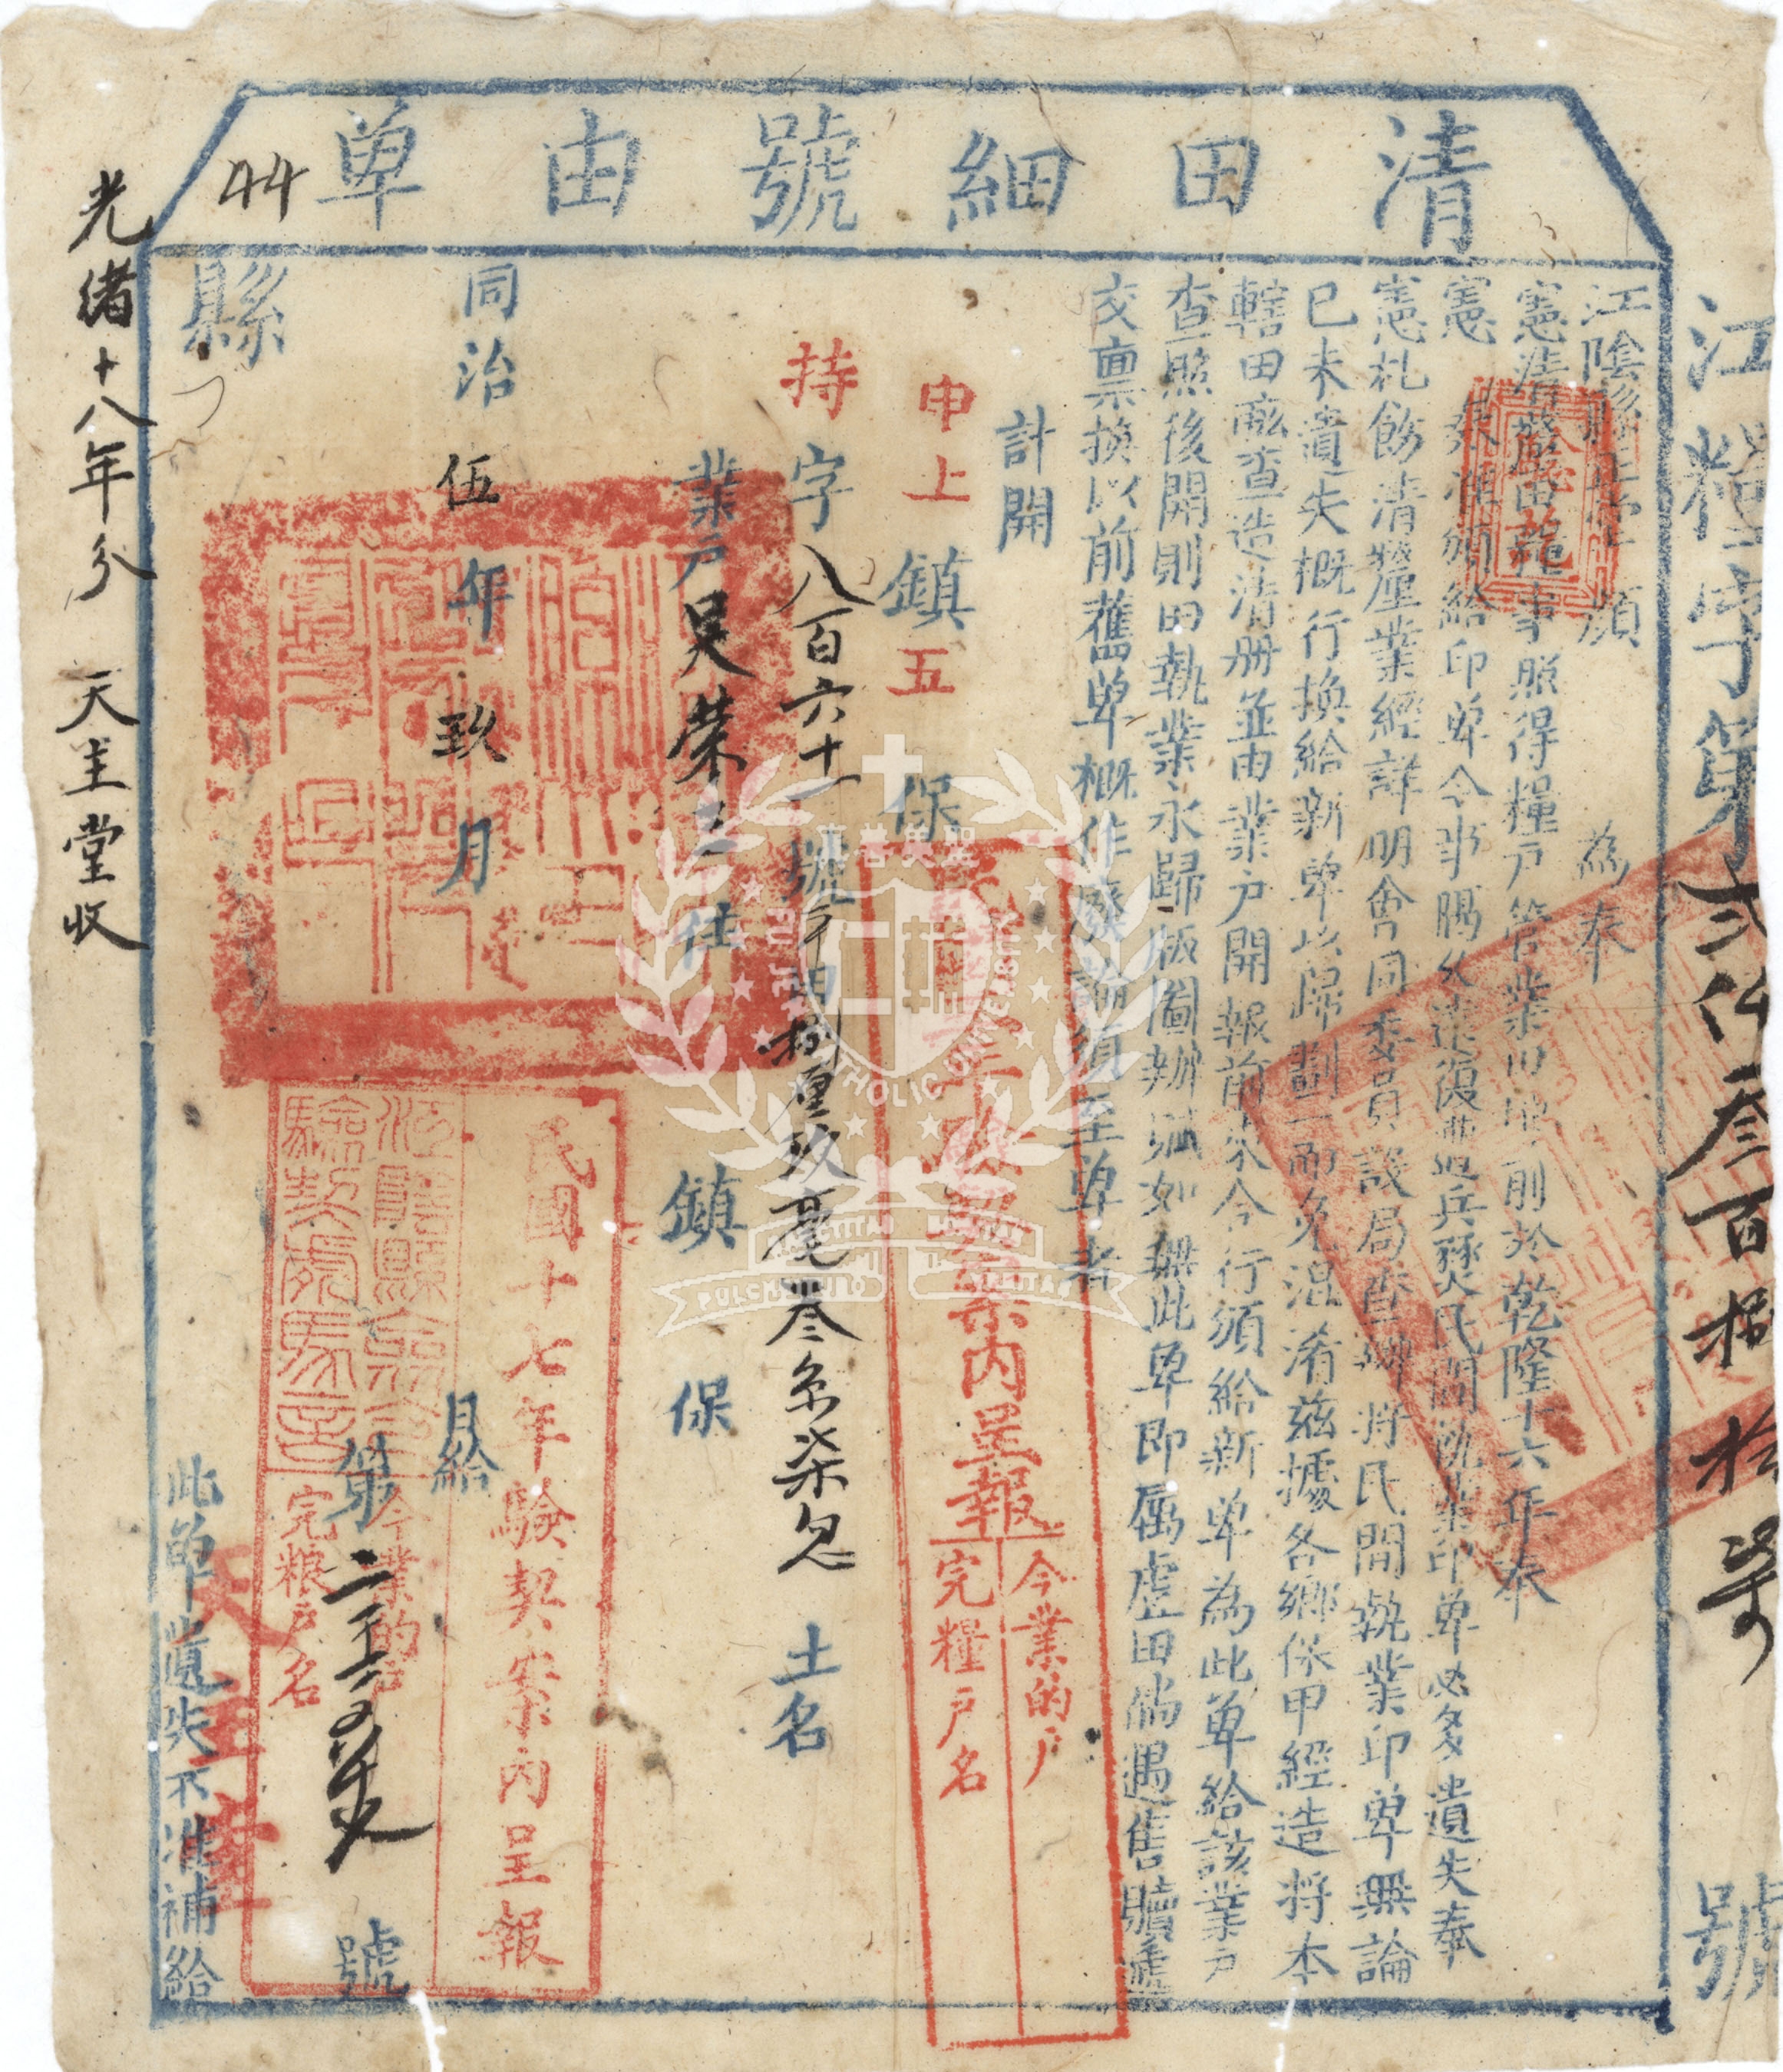 清田細號由單
江陰縣正堂顏 為奉
憲清釐田糧事照得糧戶管業田地前於乾隆十六年奉
憲 頒給印單今事隔久遠復遭兵燹民間執業印單必多遺失奉
憲札飭清釐業經詳明會同委員設局查辦將民間執業印單無論
已未遺失概行換給新單以歸劃一而免混淆茲據各鄉保甲經造將本
轄田畝查造清冊並由業戶開報前來合行頒給新單為此單給該業戶
查照後開則田執業永歸版圖辦賦如無此單即屬虛田倘遇售贖遞
交稟換以前舊單概作廢論須至單者
計開
申上鎮五保
持字八百六十一號平田捌厘玖毫叁糸柒忽 土名
業戶吳榮 住 鎮 保
同治伍年玖月 日給
縣 第 號
此單遺失不准補給
江糧字第貳仟叁百 拾 號
光緒十八年分 天主堂收
44
內呈報
今業的戶
完糧戶名
民國十七年驗契案內呈報
今業的戶
完粮戶名
天主堂